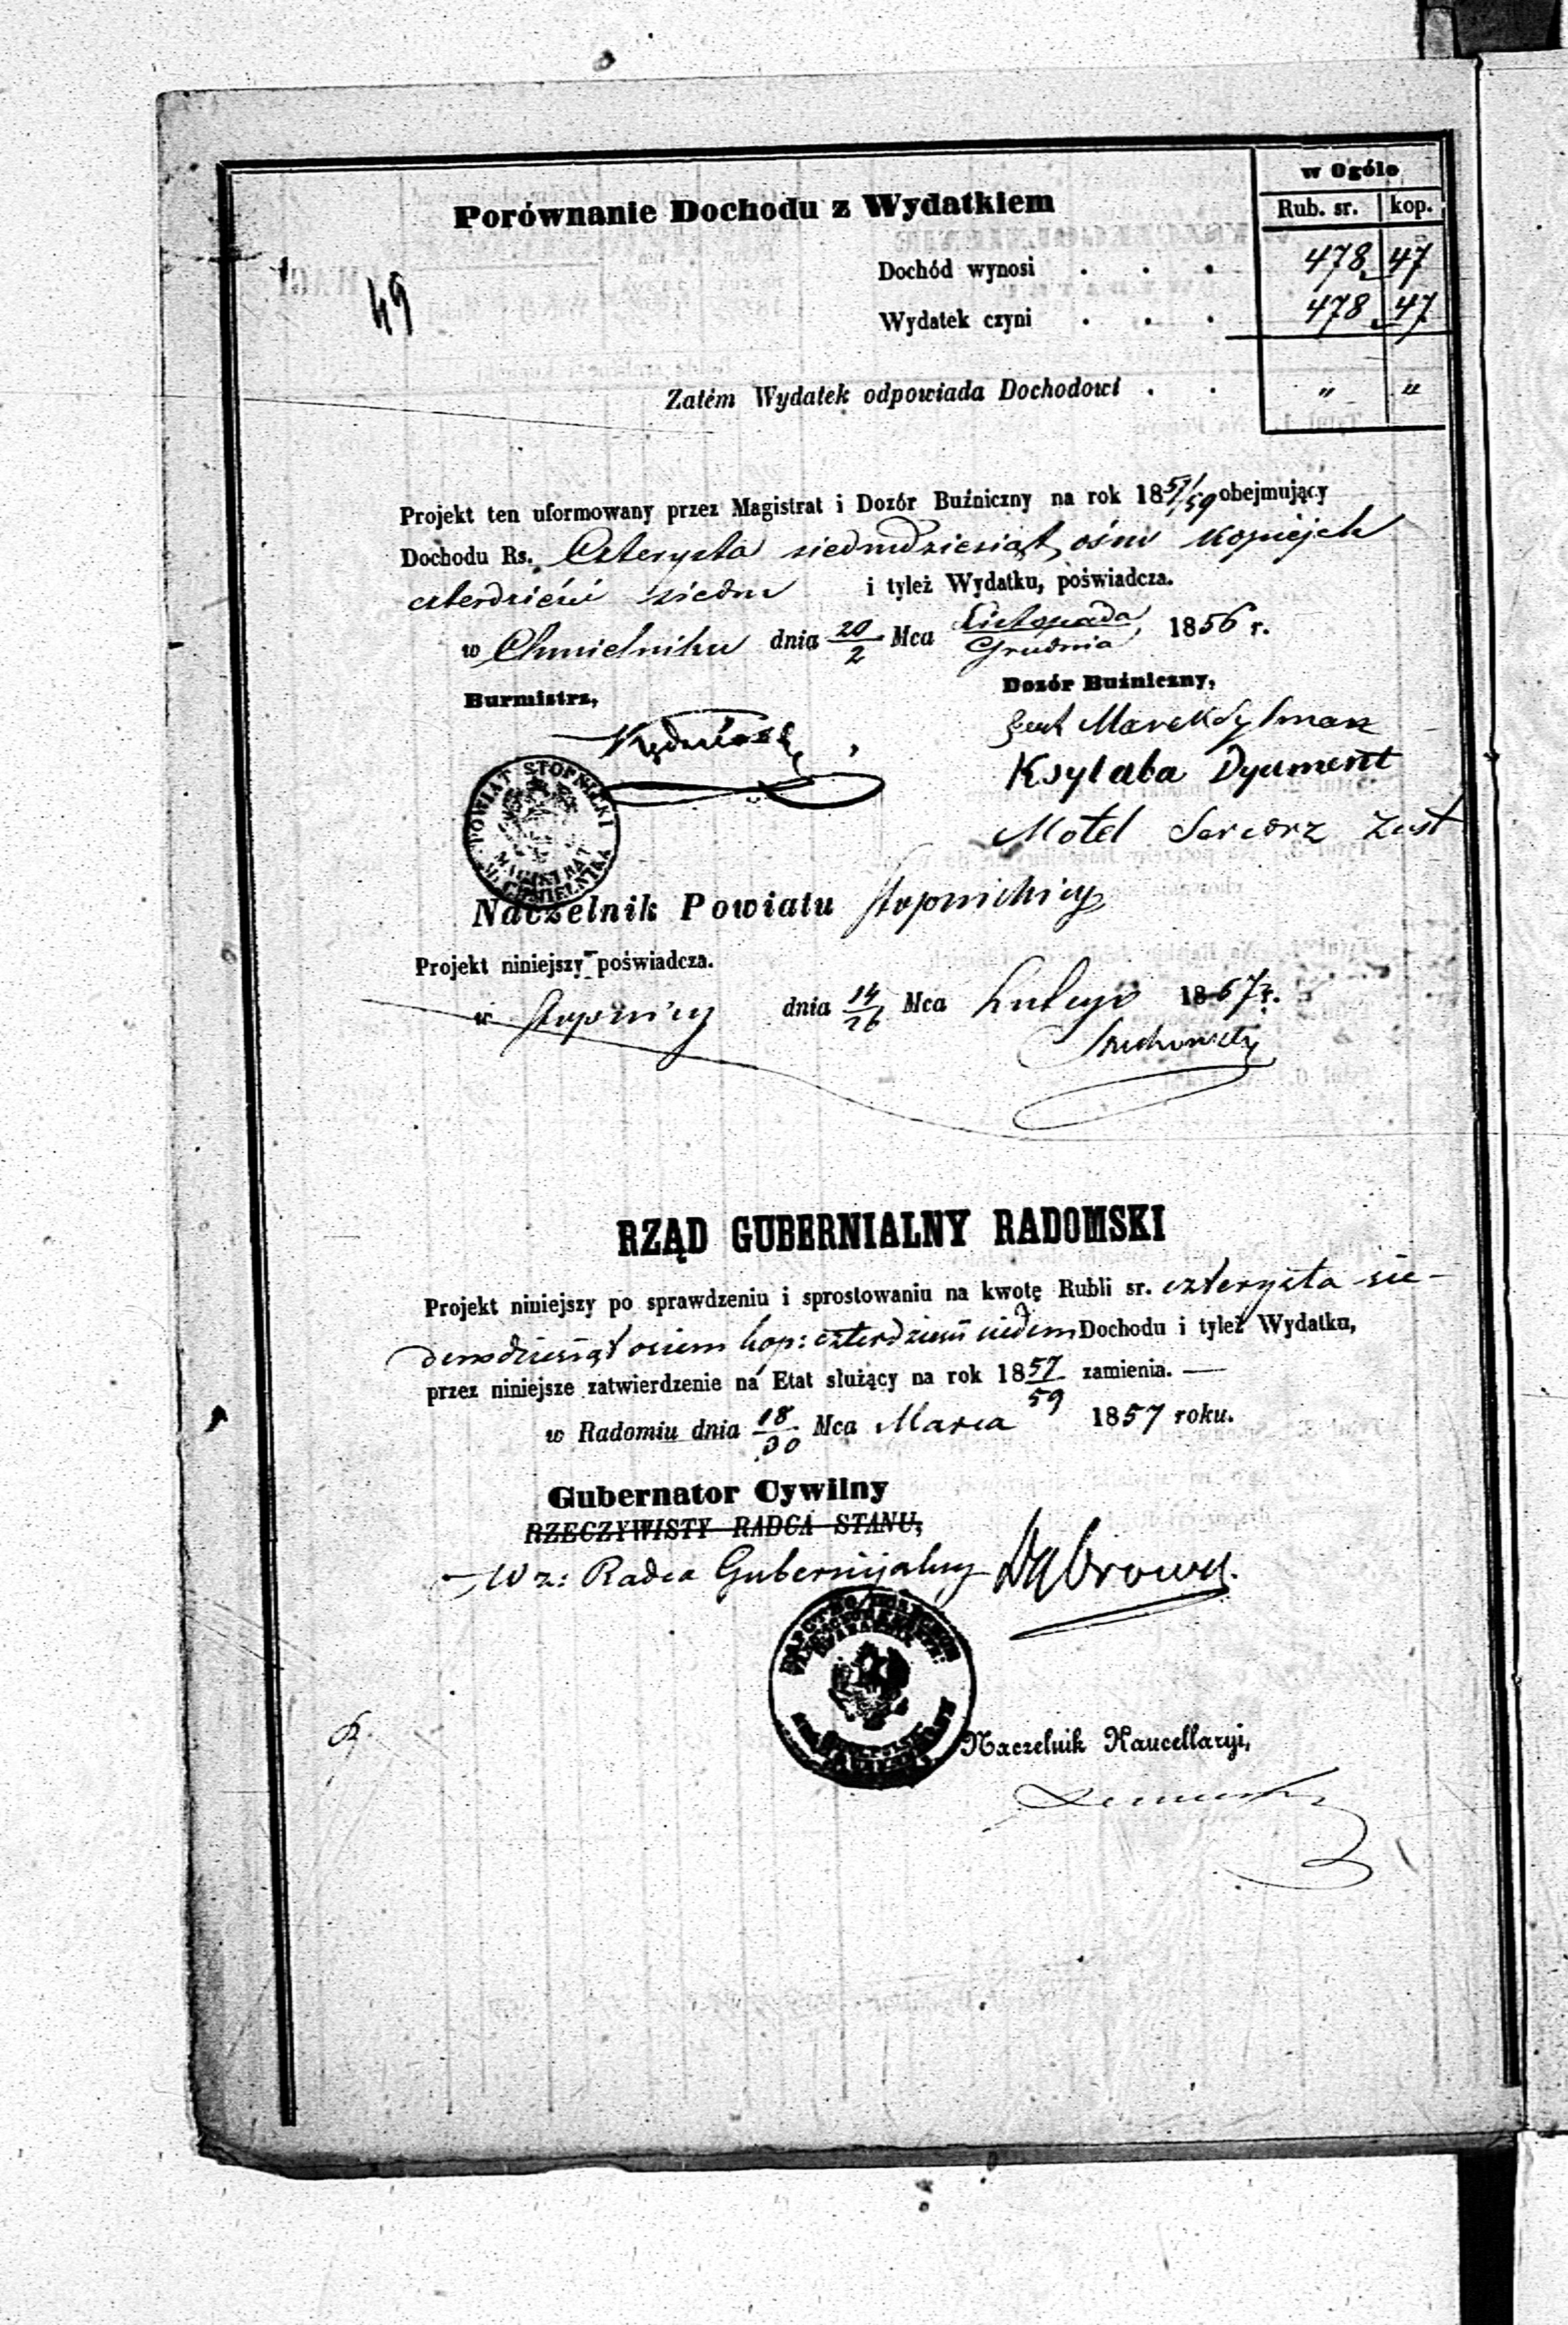 w Ogóle
Porównanie Dochodu z Wydatkiem
Rub. sr. kop.
Dochód wynosi . . . 478 47
49
Wydatek czyni . . . 478 47
Zatém Wydatek odpowiada Dochodowi . . „ „
Projekt ten uformowany przez Magistrat i Dozór Buźniczny na rok 1857/59 obejmujący
Dochodu Rs. Czterysta siedmdziesiąt ośm kopiejek
czterdzieści siedm i tyleż Wydatku, poświadcza.
w Chmielniku dnia 20/2 Mca Listopada/Grudnia 1856 r.
Burmistrz,
Dozór Buźniczny,
Marek
Ksylaba Dyament
Motel Zast
POWIAT STOPNICKI
MAGISTRAT
M. CHMIELNIKA
Naczelnik Powiatu Stopnickiego
Projekt niniejszy poświadcza.
w Stopnicy dnia 14/26 Mca Lutego 1857 r.
RZĄD GUBERNIALNY RADOMSKI
Projekt niniejszy po sprawdzeniu i sprostowaniu na kwotę Rubli sr. czterysta sie-
demdziesiąt osiem kop: czterdzieści siedem Dochodu i tyleż Wydatku,
przez niniejsze zatwierdzenie na Etat służący na rok 1857/59 zamienia. —
w Radomiu dnia 18/30 Mca Marca 1857 roku.
Gubernator Cywilny
RZECZYWISTY RADCA STANU,
W z: Radca Gubernijalny Dąbrowa
Naczelnik Kancellaryi,